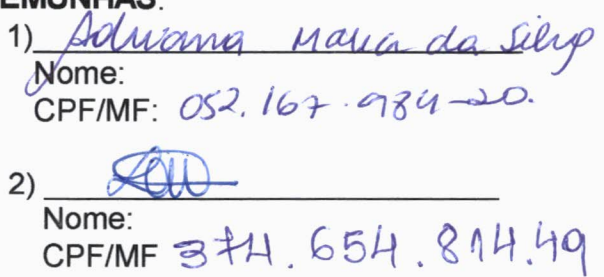 EMUNHAS:
1) Adriana Maria da Silva
Nome:
CPF/MF: 052.167.984-20.
2)
Nome:
CPF/MF 374.654.814.49